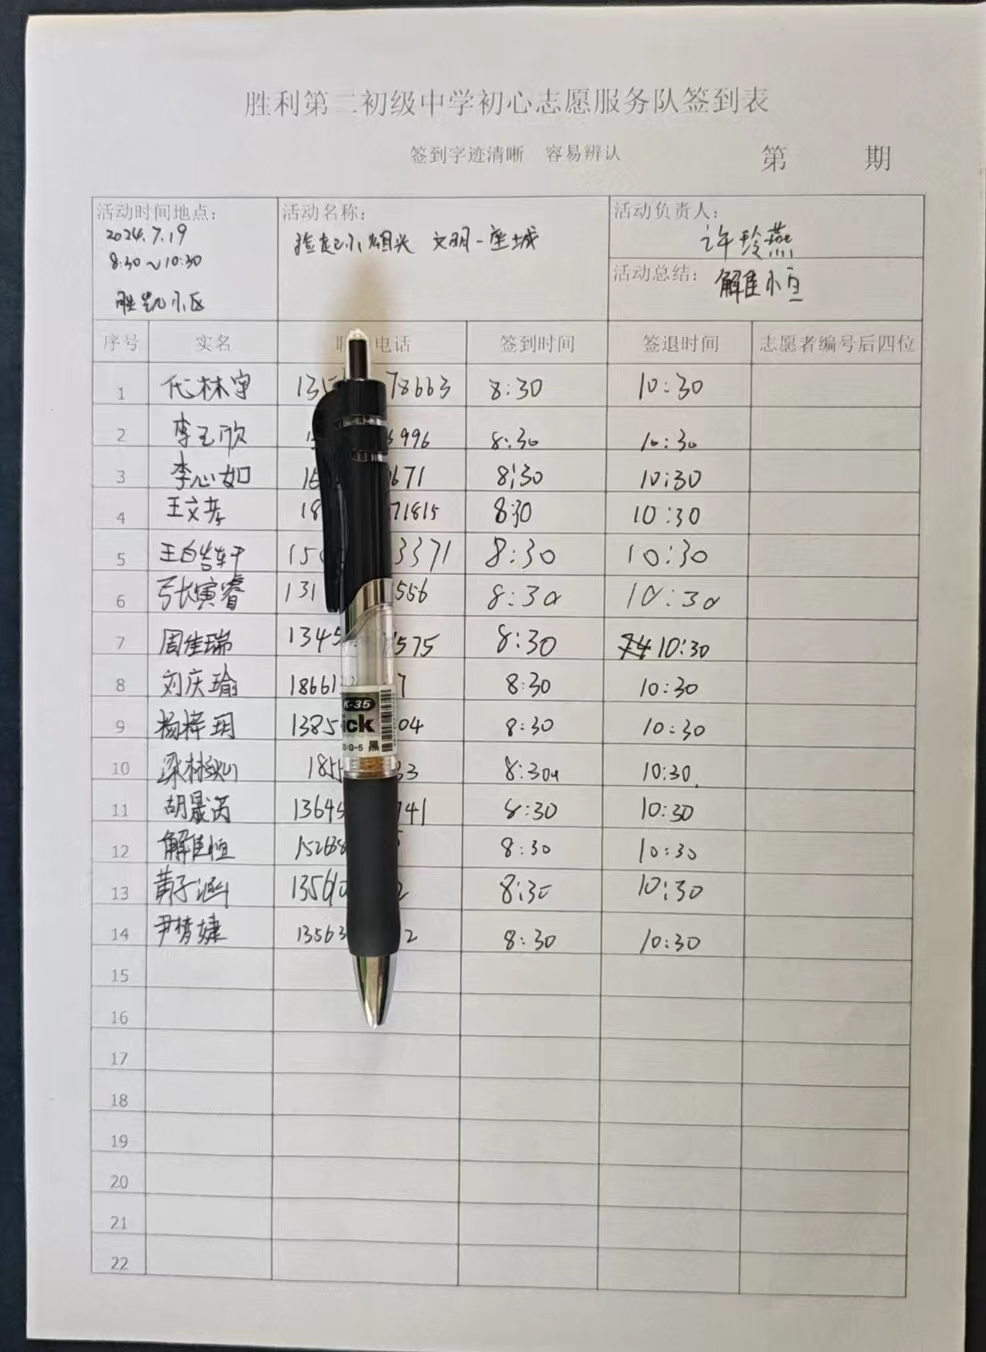 胜利第二初级中学初心志愿服务队签到表
签到字迹清晰 容易辨认 第 期
活动时间地点: 活动名称: 活动负责人:
2024.7.19 捡起小烟头 文明一座城 许玲燕
8:30~10:30 活动总结: 解佳恒
胜凯小区
序号 实名 电话 签到时间 签退时间 志愿者编号后四位
1 代林宇 135 78663 8:30 10:30
2 李玉欣 6996 8:30 10:30
3 李心如 671 8:30 10:30
4 王文孝 18 71815 8:30 10:30
5 150 3371 8:30 10:30
6 张寅睿 131 556 8:30 10:30
7 周佳瑞 1345 575 8:30 10:30
8 刘庆瑜 18661 7 8:30 10:30
9 杨梓玥 1385 04 8:30 10:30
10 梁林灿 185 33 8:30 10:30
11 胡晟芮 13645 741 8:30 10:30
12 解佳恒 15268 8:30 10:30
13 黄子涵 13561 2 8:30 10:30
14 尹梦婕 13563 2 8:30 10:30
15
16
17
18
19
20
21
22
K-35
ick
G-5 黑